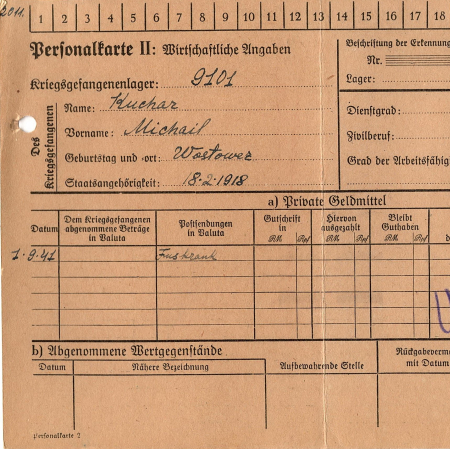 2011.
1 2 3 4 5 6 7 8 9 10 11 12 13 14 15 16 17 18
Personalkarte II: Wirtschaftliche Angaben
Beschriftung der Erkennung
Nr.
Kriegsgefangenenlager: 9101
Lager:
Des Kriegsgefangenen
Name: Kuchar
Vorname: Michail
Dienstgrad:
Zivilberuf:
Geburtstag und -ort: Wostowez
Grad der Arbeitsfähig
Staatsangehörigkeit: 18.2.1918
a) Private Geldmittel
Datum
Dem Kriegsgefangenen abgenommene Beträge in Valuta
Postsendungen in Valuta
Gutschrift in
RM. Rpf
Hiervon ausgezahlt
RM. Rpf
Bleibt Guthaben
RM. Rpf
d
1.9.41 Fusskrank
b) Abgenommene Wertgegenstände
Datum
Nähere Bezeichnung
Aufbewahrende Stelle
Rückgabeverme
mit Datum
Personalkarte 2